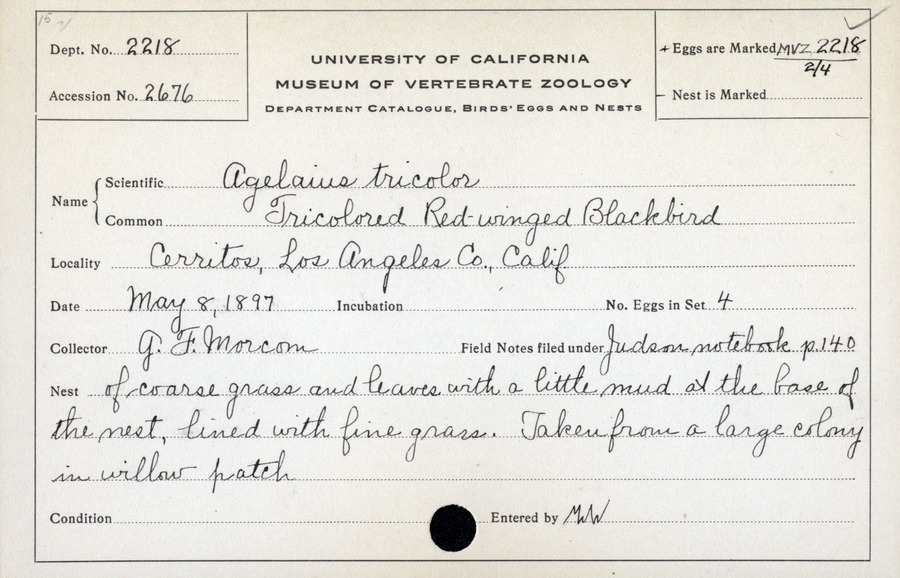 15
Dept. No. 2218
Accession No. 2676
UNIVERSITY OF CALIFORNIA
MUSEUM OF VERTEBRATE ZOOLOGY
DEPARTMENT CATALOGUE, BIRDS' EGGS AND NESTS
+ Eggs are Marked MVZ 2218
2/4
– Nest is Marked
Name
Scientific Agelaius tricolor
Common Tricolored Red-winged Blackbird
Locality Cerritos, Los Angeles Co., Calif
Date May 8, 1897 Incubation No. Eggs in Set 4
Collector G. F. Morcom Field Notes filed under Judson notebook p.140
Nest of coarse grass and leaves with a little mud at the base of
the nest, lined with fine grass. Taken from a large colony
in willow patch
Condition Entered by MW